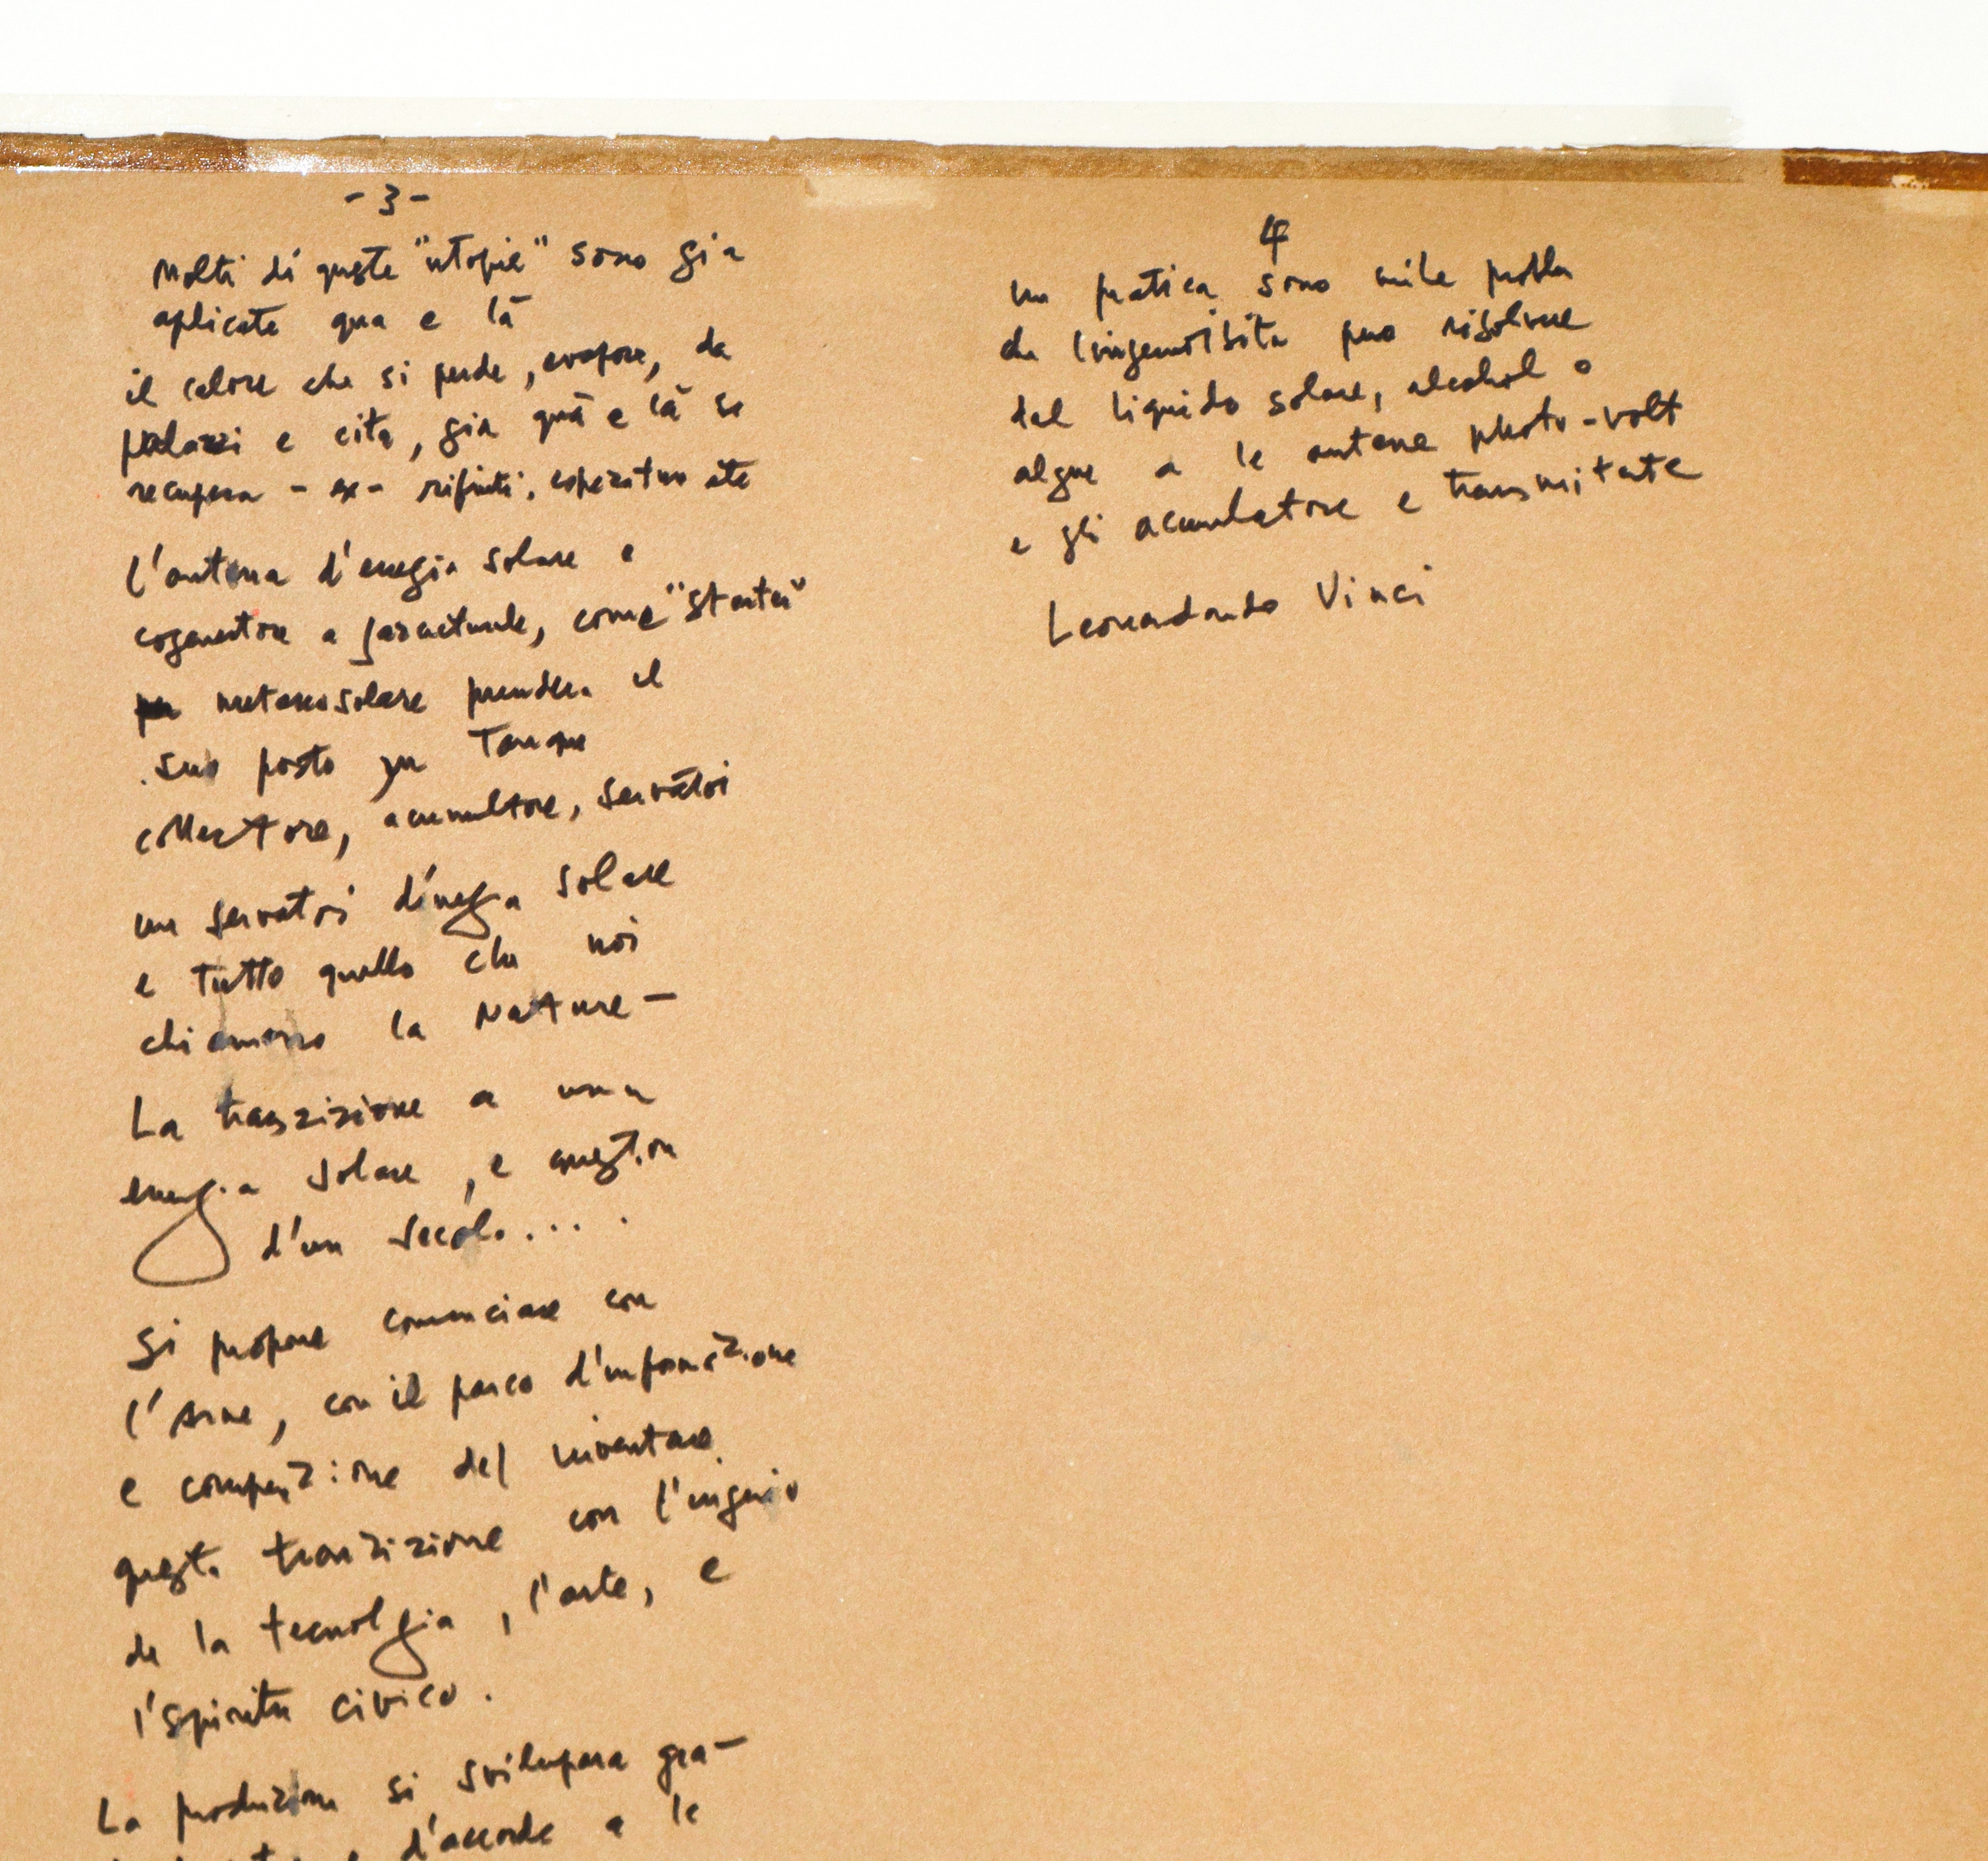 - 3 -
Molti di queste "utopie" sono gia
aplicate qua e là
il calore che si perde, evapore, da
palazzi e cita, gia quà e là se
recupera - ex- rifiuti,
l'antena d'enegia solare e
come "Stater"
prendera il
suo posto
collectore, acumultore, servatoi
un servatoi d'inegia solare
e tutto quello che noi
chiamano la Nature -
La transizione a una
energia solare, e question
d'un secolo....
Si propone cominciare con
l'Arne, con il parco d'infomazione
e compezione del inventare
questa tranzizione con l'ingenio
de la tecnolgia, l'arte, e
l'spirito civico.
La produzione si svilupara gra-
d'accorde a le
4
in pratica sono mile probla
che puo risolvere
dal liquido solare, alcohol o
algue a le antene photo-volt
e gli acumlatore e transmitate
Leonardardo Vinci